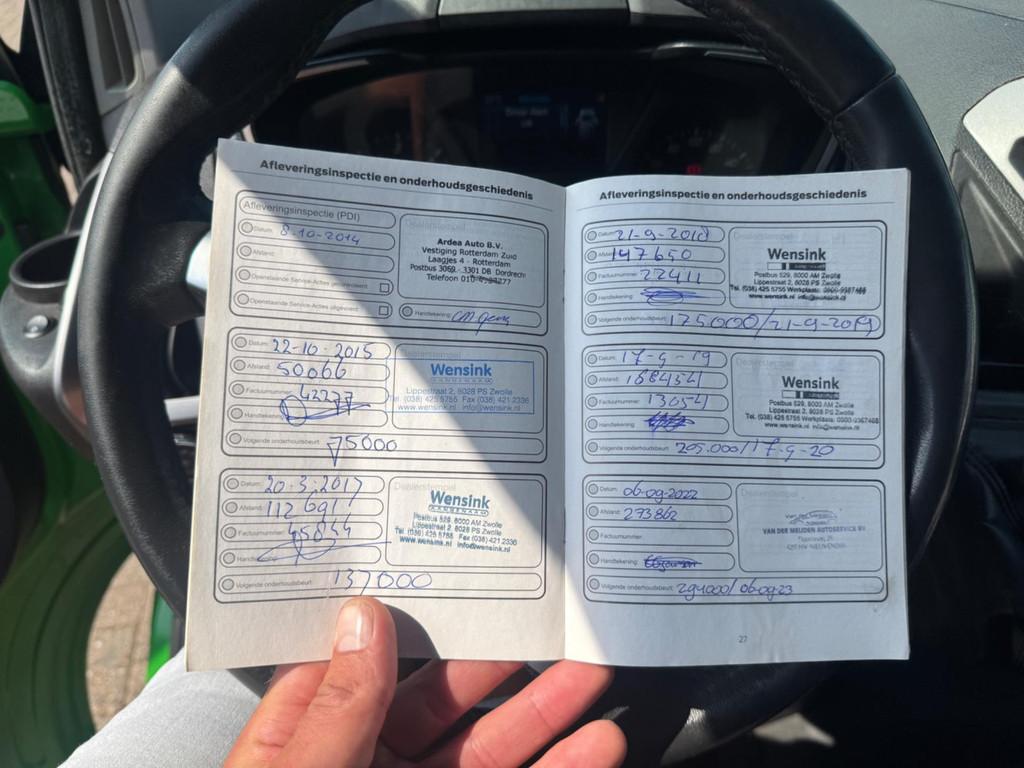 Afleveringsinspectie en onderhoudsgeschiedenis
Afleveringsinspectie (PDI)
Datum: 8-10-2014
Afstand:
Openstaande Service-Acties gecontroleerd
Openstaande Service-Acties uitgevoerd
Dealerstempel
Ardea Auto B.V.
Vestiging Rotterdam Zuid
Laagjes 4 - Rotterdam
Postbus 3069 - 3301 DB Dordrecht
Telefoon 010
Handtekening:
Datum: 22-10-2015
Afstand: 50066
Factuurnummer: 42277
Handtekening:
Volgende onderhoudsbeurt: 75000
Dealerstempel
Wensink
Lippestraat 2, 8028 PS Zwolle
Tel. (038) 425 5755 Fax (038) 421 2336
www.wensink.nl info@wensink.nl
Datum: 20-3-2017
Afstand: 112691
Factuurnummer: 45034
Handtekening:
Volgende onderhoudsbeurt: 137000
Dealerstempel
Wensink
Postbus 529, 8000 AM Zwolle
Lippestraat 2, 8028 PS Zwolle
Tel. (038) 425 5755 Fax (038) 421 2336
www.wensink.nl info@wensink.nl
Afleveringsinspectie en onderhoudsgeschiedenis
Datum: 21-9-2018
Afstand: 147650
Factuurnummer: 22411
Handtekening:
Volgende onderhoudsbeurt: 175000/21-9-2019
Dealerstempel
Wensink
Postbus 529, 8000 AM Zwolle
Lippestraat 2, 8028 PS Zwolle
Tel. (038) 425 5755 Werkplaats: 0900-9367468
www.wensink.nl info@wensink.nl
Datum: 17-9-19
Afstand: 168454
Factuurnummer: 13054
Handtekening:
Volgende onderhoudsbeurt: 205.000/17-9-20
Dealerstempel
Wensink
Postbus 529, 8000 AM Zwolle
Lippestraat 2, 8028 PS Zwolle
Tel. (038) 425 5755 Werkplaats: 0900-9367468
www.wensink.nl info@wensink.nl
Datum: 06-09-2022
Afstand: 273862
Factuurnummer:
Handtekening:
Volgende onderhoudsbeurt: 294000/06-09-23
Dealerstempel
VAN DER MEIJDEN AUTOSERVICE BV
27